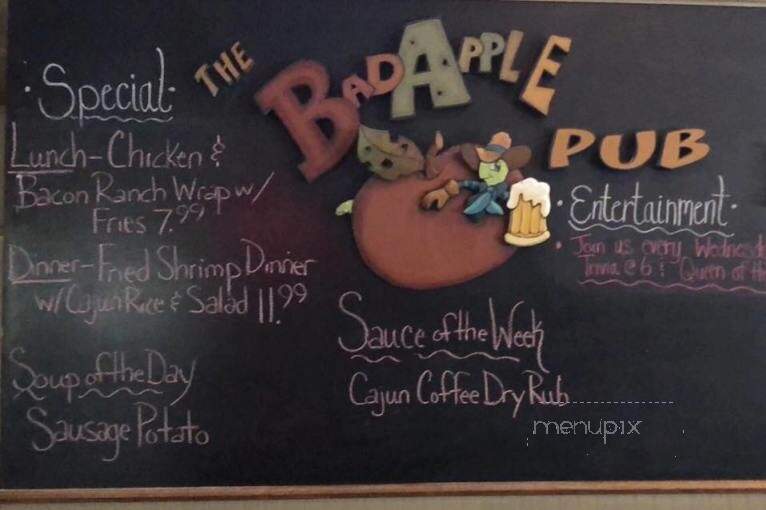 THE
BAD APPLE
PUB
· Special ·
Lunch - Chicken &
Bacon Ranch Wrap w/
Fries 7.99
Dinner - Fried Shrimp Dinner
w/ Cajun Rice & Salad 11.99
Soup of the Day
Sausage Potato
Sauce of the Week
Cajun Coffee Dry Rub
· Entertainment ·
• Join us every
Trivia @ 6 & Queen of
menupix